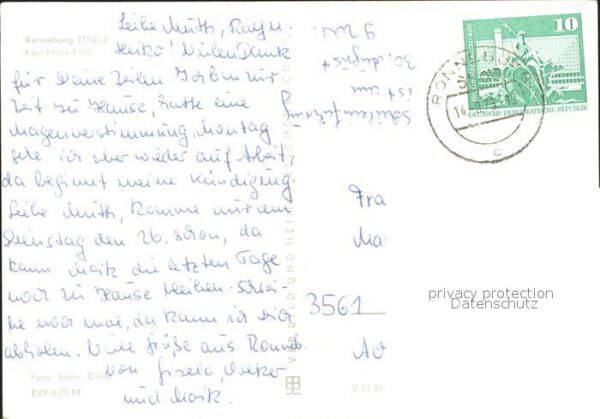 Ronneburg (Thür.)
Karl-Marx-Platz
Liebe Mutti,
Heiko! Vielen Dank
für Deine Zeilen. Ich bin zur
Zeit zu Hause, hatte eine
Magenverstimmung, Montag
gehe ich aber wieder auf Arbeit,
da beginnt meine Kündigung.
Liebe Mutti, komme nur am
Dienstag den 26. schon, da
kann Maik die letzten Tage
noch zu Hause bleiben. Schrei-
be noch mal, da kann ich Dich
abholen. Viele Grüße aus Ronneb.
von Gisela,
und Maik.
Schuleinführung
ist am
30. August
9 Uhr.
Foto: Stohr,
EVP 0,25 M
VEB BILD UND HEI
V 11 50
10
DEUTSCHE DEMOKRATISCHE REPUBLIK
RONNEBURG
c
Fra
Ma
3561
privacy protection
Datenschutz